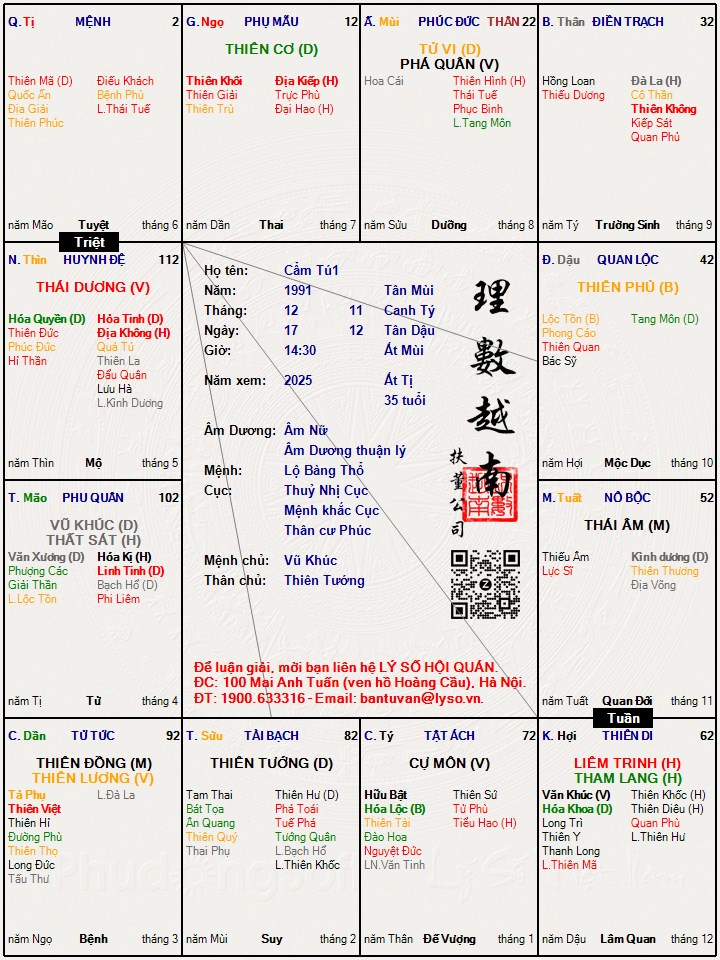 Q. Tị MỆNH 2
Thiên Mã (Đ) Điếu Khách
Quốc Ấn Bệnh Phù
Địa Giải L.Thái Tuế
Thiên Phúc
năm Mão Tuyệt tháng 6
G. Ngọ PHỤ MẪU 12
THIÊN CƠ (Đ)
Thiên Khôi Địa Kiếp (H)
Thiên Giải Trực Phù
Thiên Trù Đại Hao (H)
năm Dần Thai tháng 7
Ấ. Mùi PHÚC ĐỨC THÂN 22
TỬ VI (Đ)
PHÁ QUÂN (V)
Hoa Cái Thiên Hình (H)
Thái Tuế
Phục Binh
L.Tang Môn
năm Sửu Dưỡng tháng 8
B. Thân ĐIỀN TRẠCH 32
Hồng Loan Đà La (H)
Thiếu Dương Cô Thần
Thiên Không
Kiếp Sát
Quan Phủ
năm Tý Trường Sinh tháng 9
Triệt
N. Thìn HUYNH ĐỆ 112
THÁI DƯƠNG (V)
Hóa Quyền (Đ) Hỏa Tinh (Đ)
Thiên Đức Địa Không (H)
Phúc Đức Quả Tú
Hỉ Thần Thiên La
Đẩu Quân
Lưu Hà
L.Kình Dương
năm Thìn Mộ tháng 5
Họ tên: Cẩm Tú1
Năm: 1991 Tân Mùi
Tháng: 12 11 Canh Tý
Ngày: 17 12 Tân Dậu
Giờ: 14:30 Ất Mùi
Năm xem: 2025 Ất Tị
35 tuổi
Âm Dương: Âm Nữ
Âm Dương thuận lý
Mệnh: Lộ Bàng Thổ
Cục: Thuỷ Nhị Cục
Mệnh khắc Cục
Thân cư Phúc
Mệnh chủ: Vũ Khúc
Thân chủ: Thiên Tướng
理數越南
扶董公司
Để luận giải, mời bạn liên hệ LÝ SỐ HỘI QUÁN.
ĐC: 100 Mai Anh Tuấn (ven hồ Hoàng Cầu), Hà Nội.
ĐT: 1900.633316 - Email: bantuvan@lyso.vn.
Đ. Dậu QUAN LỘC 42
THIÊN PHỦ (B)
Lộc Tồn (B) Tang Môn (Đ)
Phong Cáo
Thiên Quan
Bác Sỹ
năm Hợi Mộc Dục tháng 10
T. Mão PHU QUÂN 102
VŨ KHÚC (Đ)
THẤT SÁT (H)
Văn Xương (Đ) Hóa Kị (H)
Phượng Các Linh Tinh (Đ)
Giải Thần Bạch Hổ (Đ)
L.Lộc Tồn Phi Liêm
năm Tị Tử tháng 4
M. Tuất NÔ BỘC 52
THÁI ÂM (M)
Thiếu Âm Kình dương (Đ)
Lực Sĩ Thiên Thương
Địa Võng
năm Tuất Quan Đới tháng 11
Tuần
C. Dần TỬ TỨC 92
THIÊN ĐỒNG (M)
THIÊN LƯƠNG (V)
Tả Phụ L.Đà La
Thiên Việt
Thiên Hỉ
Đường Phù
Thiên Thọ
Long Đức
Tấu Thư
năm Ngọ Bệnh tháng 3
T. Sửu TÀI BẠCH 82
THIÊN TƯỚNG (Đ)
Tam Thai Thiên Hư (Đ)
Bát Tọa Phá Toái
Ân Quang Tuế Phá
Thiên Quý Tướng Quân
Thai Phụ L.Bạch Hổ
L.Thiên Khốc
năm Mùi Suy tháng 2
C. Tý TẬT ÁCH 72
CỰ MÔN (V)
Hữu Bật Thiên Sứ
Hóa Lộc (B) Tử Phù
Thiên Tài Tiểu Hao (H)
Đào Hoa
Nguyệt Đức
LN.Văn Tinh
năm Thân Đế Vượng tháng 1
K. Hợi THIÊN DI 62
LIÊM TRINH (H)
THAM LANG (H)
Văn Khúc (V) Thiên Khốc (H)
Hóa Khoa (Đ) Thiên Diêu (H)
Long Trì Quan Phù
Thiên Y L.Thiên Hư
Thanh Long
L.Thiên Mã
năm Dậu Lâm Quan tháng 12